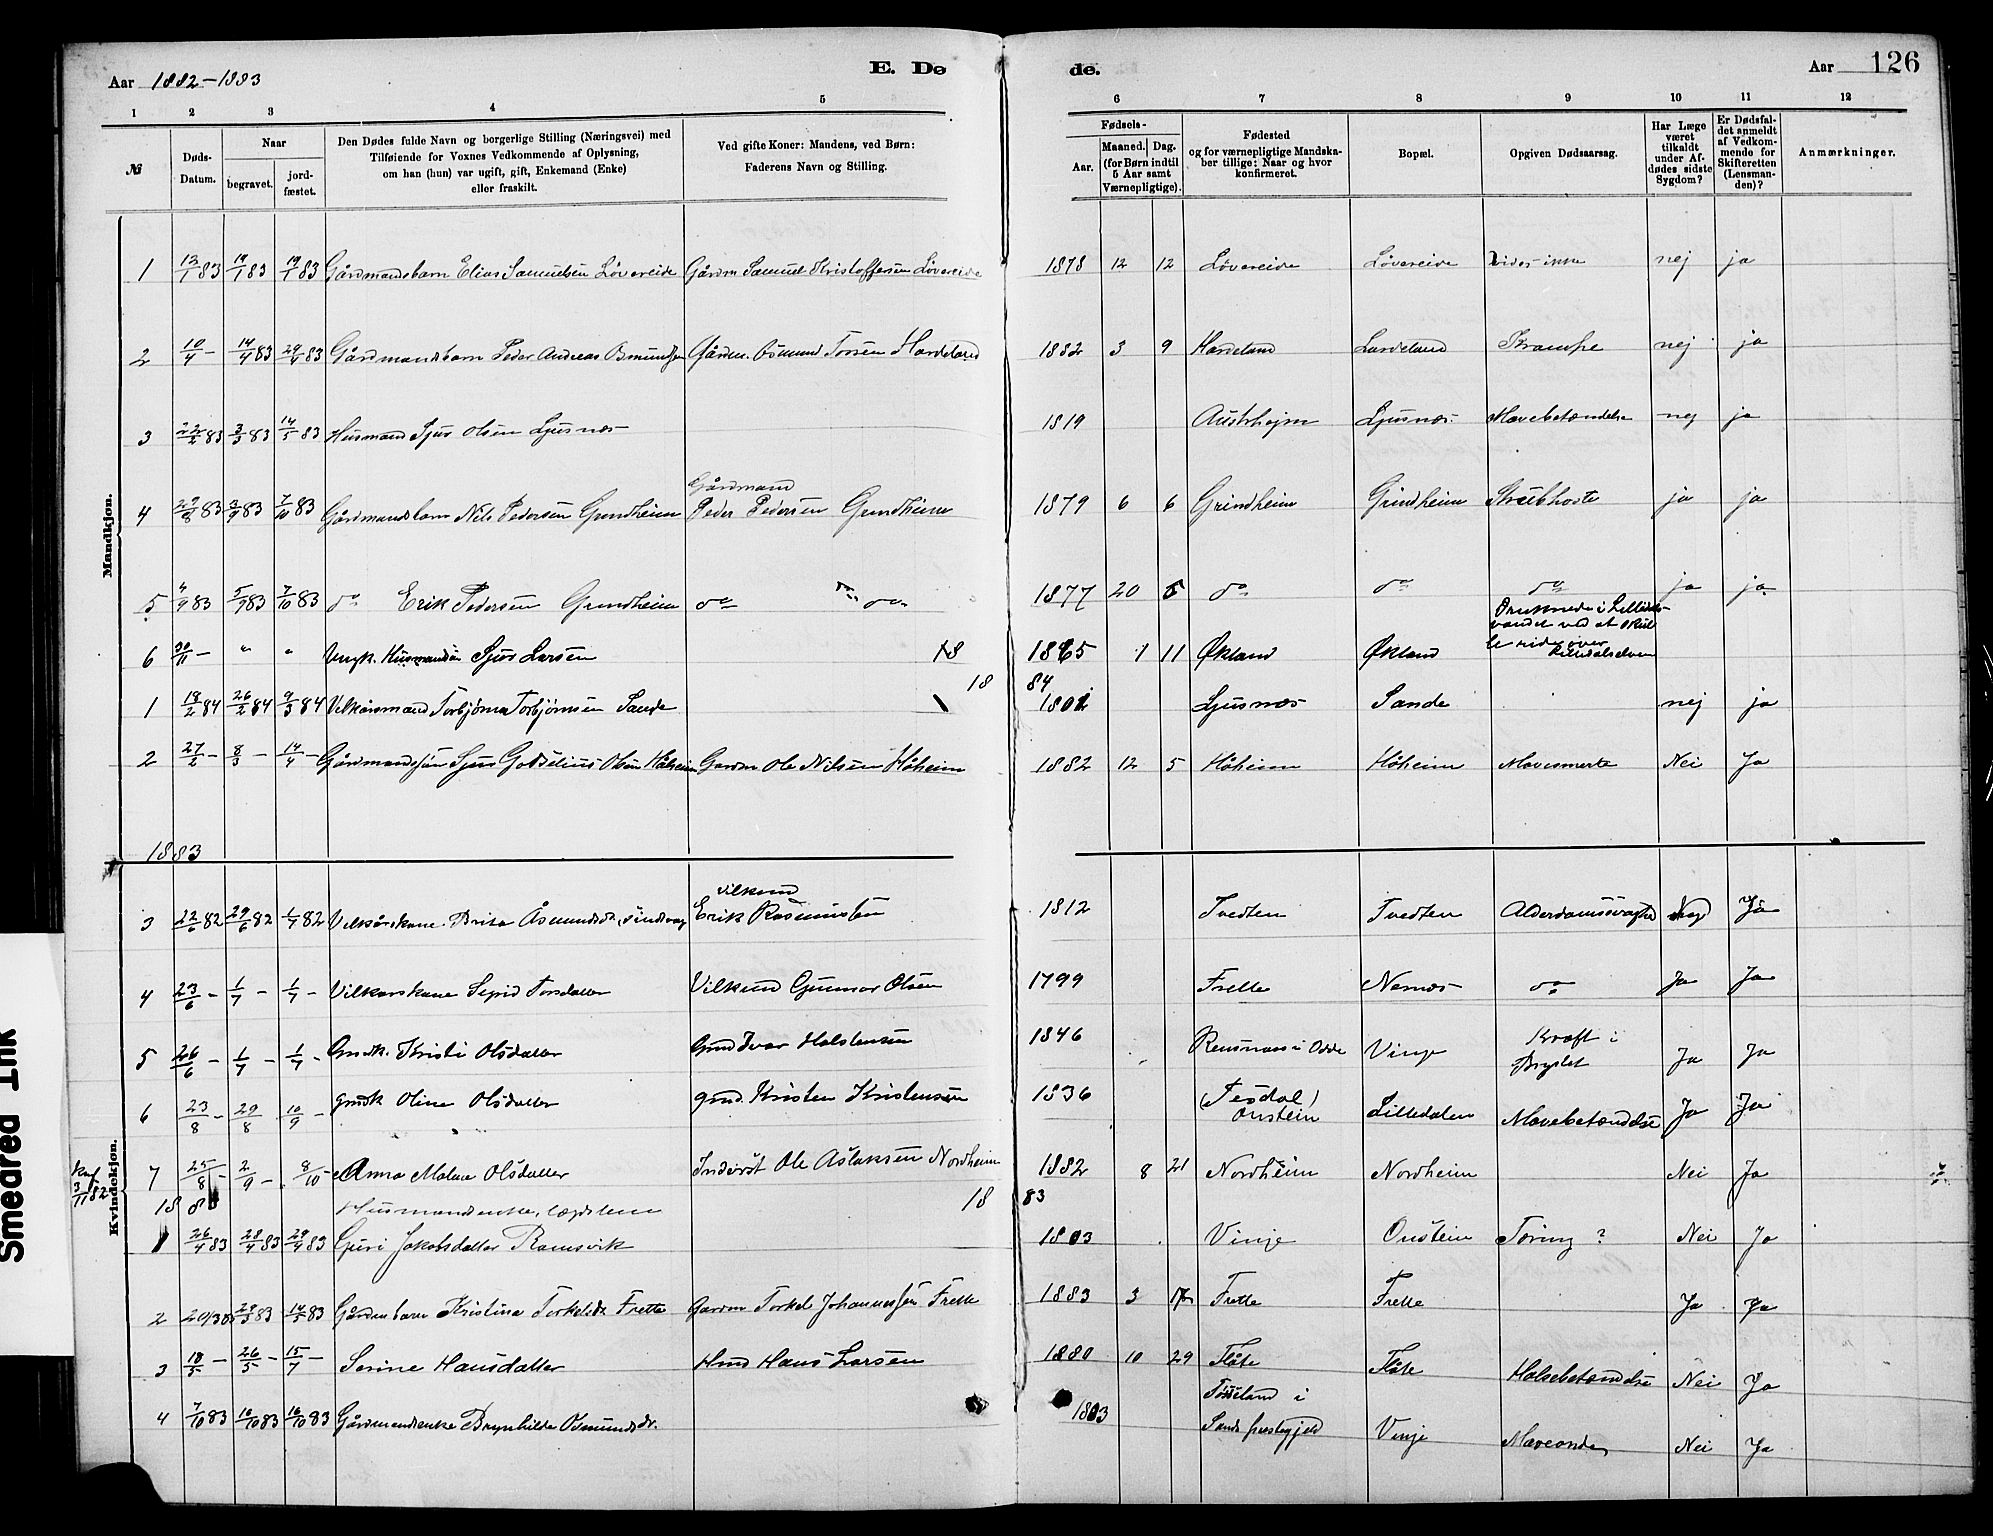 Aar 1882-1883
E. Dø
de.
Aar
126
1 2 3 4 5 6 7 8 9 10 11 12
№
Døds-Datum.
Naar
begravet.
jordfæstet.
Den Dødes fulde Navn og borgerlige Stilling (Næringsvei) med
Tilføiende for Voxnes Vedkommende af Oplysning,
om han (hun) var ugift, gift, Enkemand (Enke)
eller fraskilt.
Ved gifte Koner: Mandens, ved Børn:
Faderens Navn og Stilling.
Fødsels-
Aar.
Maaned. Dag.
(for Børn indtil
5 Aar samt
Værnepligtige).
Fødested
og for værnepligtige Mandskaber tillige: Naar og hvor
konfirmeret.
Bopæl.
Opgiven Dødsaarsag.
Har Læge
været
tilkaldt
under Afdødes sidste
Sygdom?
Er Dødsfaldet anmeldt
af Vedkommende for
Skifteretten
(Lensmanden)?
Anmærkninger.
Mandkjøn.
1 12/1 83 19/1 83 19/1 83 Gårdmandsbarn Elias Samuelsen Løvereide Gårdm Samuel Kristoffersen Løvereide 1878 12 12 Løvereide Løvereide vides ikke nej ja
2 10/4 - 14/4 83 29/4 83 Gårdmandsbarn Peder Andreas Osmundsen Gårdm. Osmund Torsen Hardeland 1882 3 9 Hardeland Hardeland Krampe nej ja
3 22/2 83 3/3 83 14/5 83 Husmand Sjur Olsen Ljusnæs 1819 Austrheim Ljusnæs Mavebetændelse nej ja
Gårdmand
4 29/8 83 2/9 83 7/10 83 Gårdmandsbarn Nils Pedersen Grindheim Peder Pedersen Grindheim 1879 6 6 Grindheim Grindheim Strubhoste ja ja
5 4/9 83 5/9 83 7/10 83 do Erik Pedersen Grindheim do do do 1877 20 5 do do do ja ja
6 30/11 - " " Ungk. Husmandsøn Sjur Larsen 1865 1 11 Økland Økland Druknede i
18 84
1 18/2 84 26/2 84 9/3 84 Vilkårsmand Torbjørn Torbjørnsen Sande 1802 Ljusnæs Sande nej ja
2 27/2 - 8/3 - 14/4 - Gårdmandssøn Sjur Godtselius Olsen Håheim Gårdm Ole Nilsen Håheim 1882 12 5 Håheim Håheim Mavesmerte Nei Ja
1883
Kvindekjøn.
Vilkmd
3 22/6 82 29/6 82 1/7 82 Vilkårskone Brita Åsmundsdr. Erik Rasmussen 1812 Tvedten Tvedten Alderdomssvaghed Ja
4 23/6 - 1/7 - 1/7 - Vilkårskone Sigrid Torsdatter Vilkmd Gunnar Olsen 1799 Frette Nernes do Ja Ja
5 26/6 - 1/7 - 1/7 - Gmdk. Kristi Olsdatter Gmd Ivar Halstensen 1846 Reusnæs i Odde Vinje Kræft i Brystet Ja Ja
6 23/8 - 29/8 10/9 - gmdk Oline Olsdatter gmd. Kristen Kristensen 1836 (Tesdal) Onstein Lilledalen Mavebetændelse Ja Ja
7 25/8 - 2/9 - 8/10 - Anna Malene Olsdatter Inderst Ole Aslaksen Nordheim 1882 8 21 Nordheim Nordheim Nei Ja
3/11 82
188 Husmandsenke, lægdslem 18 83
1 26/4 83 28/4 83 29/4 83 Guri Jakobsdatter Ramsvik 1803 Vinje Onstein Tæring? Nei Ja
2 29/3 83 14/5 83 Gårdmbarn Kristina Torkelsdr Frette Gardm Torkel Johannessen Frette 1883 3 Frette Frette Ja Ja
3 18/5 - 26/5 - 15/7 - Serine Hansdatter Hmd Hans Larsen 1880 10 29 Flåte Flåte Halsebetændelse Nei Ja
4 7/10 83 16/10 83 16/10 83 Gårdmandsenke Brynhilda Osmundsdr. 1803 Tøsseland i Sands præstegjeld Vinje Maveonde Nei Ja
Smedred Ink